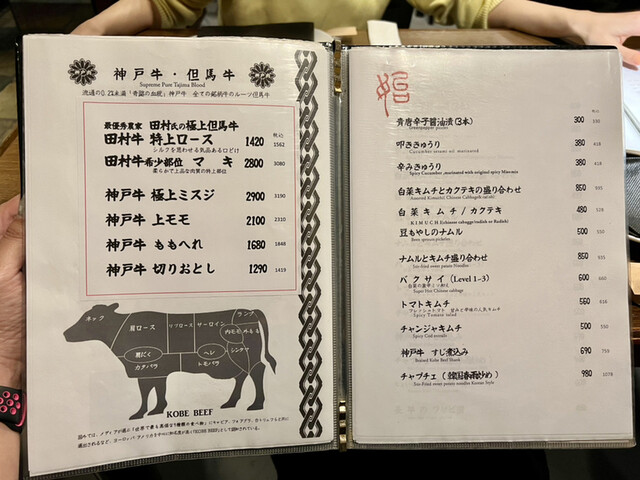 神戸牛・但馬牛
Supreme Pure Tajima Blood
流通の0.2%未満「奇蹟の血統」神戸牛 全ての銘柄牛のルーツ但馬牛
税込
最優秀農家 田村氏の極上但馬牛
田村牛 特上ロース 1420 1562
シルクを思わせる気品ある口どけ
田村牛希少部位 マキ 2800 3080
柔らかで上品な肉質の特上部位
神戸牛 極上ミスジ 2900 3190
神戸牛 上モモ 2100 2310
神戸牛 ももへれ 1680 1848
神戸牛 切りおとし 1290 1419
ネック
肩ロース
リブロース
サーロイン
ランプ
内モモ
外もも
肩にく
ヘレ
シンタマ
カタバラ
トモバラ
KOBE BEEF
青唐辛子醤油漬(3本) 300 330
Greenpepper
叩ききゅうり 380 418
Cucumber sesami oil marinated
辛みきゅうり 380 418
Spicy Cucumber ,marinated with original spicy Miso-mix
白菜キムチとカクテキの盛り合わせ 850 935
Assorted Kimuchi( Chinese Cabbage& radish)
白菜キムチ / カクテキ 480 528
KIMUCH (Chinese cabagge/radish or Radish)
豆もやしのナムル 500 550
Bean sprouts
ナムルとキムチ盛り合わせ 850 935
Stir-fried sweet potato Noodles
パクサイ (Level 1~3) 600 660
Super Hot Chinese cabbage
トマトキムチ 560 616
Spicy Tomato salad
チャンジャキムチ 500 550
Spicy Cod
神戸牛 すじ煮込み 690 759
Boiled Kobe Beef Shank
チャプチェ (韓国春雨炒め) 980 1078
Stir-fried sweet potato noodles Korean Style